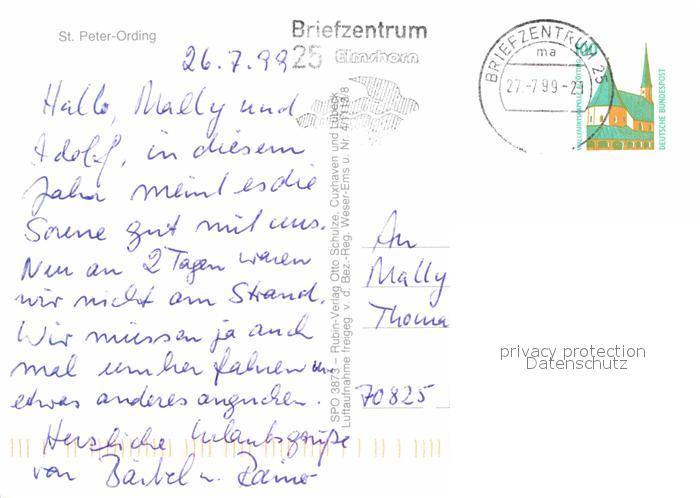 St. Peter-Ording
Briefzentrum
25 Elmshorn
BRIEFZENTRUM 25
ma
27.-7.99-21
100
WALLFAHRTSKAPELLE ALTÖTTING
DEUTSCHE BUNDESPOST
26.7.99
Hallo, Mally und
Adolf, in diesem
Jahr meint es die
Sonne gut mit uns.
Nur an 2 Tagen waren
wir nicht am Strand.
Wir müssen ja auch
mal umher fahren u.
etwas anderes angucken.
Herzliche Urlaubsgrüße
von Bärbel u. Rainer
SPO 3873 – Rubin-Verlag Otto Schulze, Cuxhaven und Lübeck
Luftaufnahme freigeg. v. d. Bez.-Reg. Weser-Ems u. Nr. 4/1113/8
An
Mally
Thoma
70825
privacy protection
Datenschutz